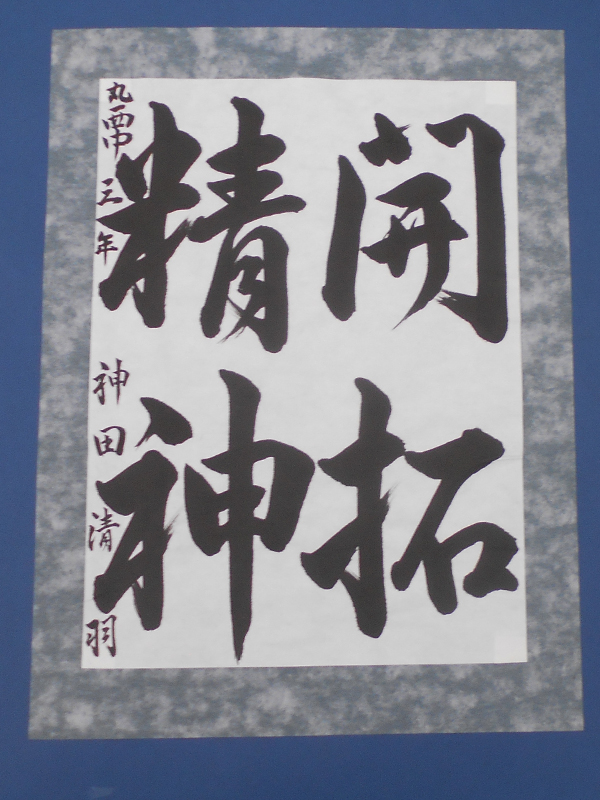 開拓
精神
丸西中 三年 神田 清羽